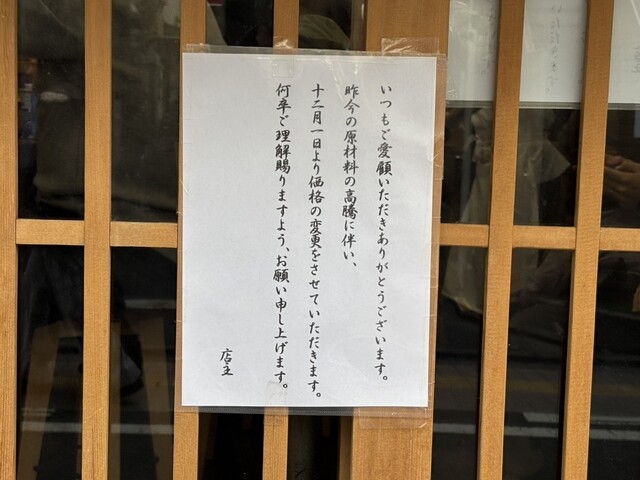 いつもご愛顧いただきありがとうございます。
昨今の原材料の高騰に伴い、
十二月一日より価格の変更をさせていただきます。
何卒ご理解賜りますよう、お願い申し上げます。
店主